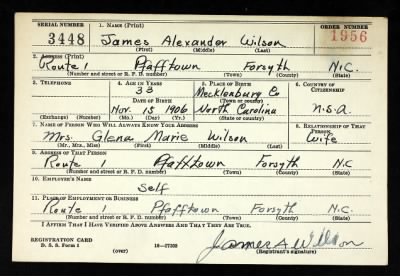 SERIAL NUMBER 1. NAME (Print) ORDER NUMBER
3448 James Alexander Wilson 1956
(First) (Middle) (Last)
2. ADDRESS (Print)
Route 1 Pfafftown Forsyth N.C.
(Number and street or R. F. D. number) (Town) (County) (State)
3. TELEPHONE 4. AGE IN YEARS 5. PLACE OF BIRTH 6. COUNTRY OF CITIZENSHIP
33 Mecklenburg Co
DATE OF BIRTH (Town or county)
Nov. 15 1906 North Carolina U.S.A.
(Exchange) (Number) (Mo.) (Day) (Yr.) (State or country)
7. NAME OF PERSON WHO WILL ALWAYS KNOW YOUR ADDRESS 8. RELATIONSHIP OF THAT PERSON
Mrs. Glena Marie Wilson Wife
(Mr., Mrs., Miss) (First) (Middle) (Last)
9. ADDRESS OF THAT PERSON
Route 1 Pfafftown Forsyth N.C
(Number and street or R. F. D. number) (Town) (County) (State)
10. EMPLOYER'S NAME
Self
11. PLACE OF EMPLOYMENT OR BUSINESS
Route 1 Pfafftown Forsyth N.C.
(Number and street or R. F. D. number) (Town) (County) (State)
I AFFIRM THAT I HAVE VERIFIED ABOVE ANSWERS AND THAT THEY ARE TRUE.
REGISTRATION CARD James A Wilson
D. S. S. Form 1 (over) 16—17105 (Registrant's signature)